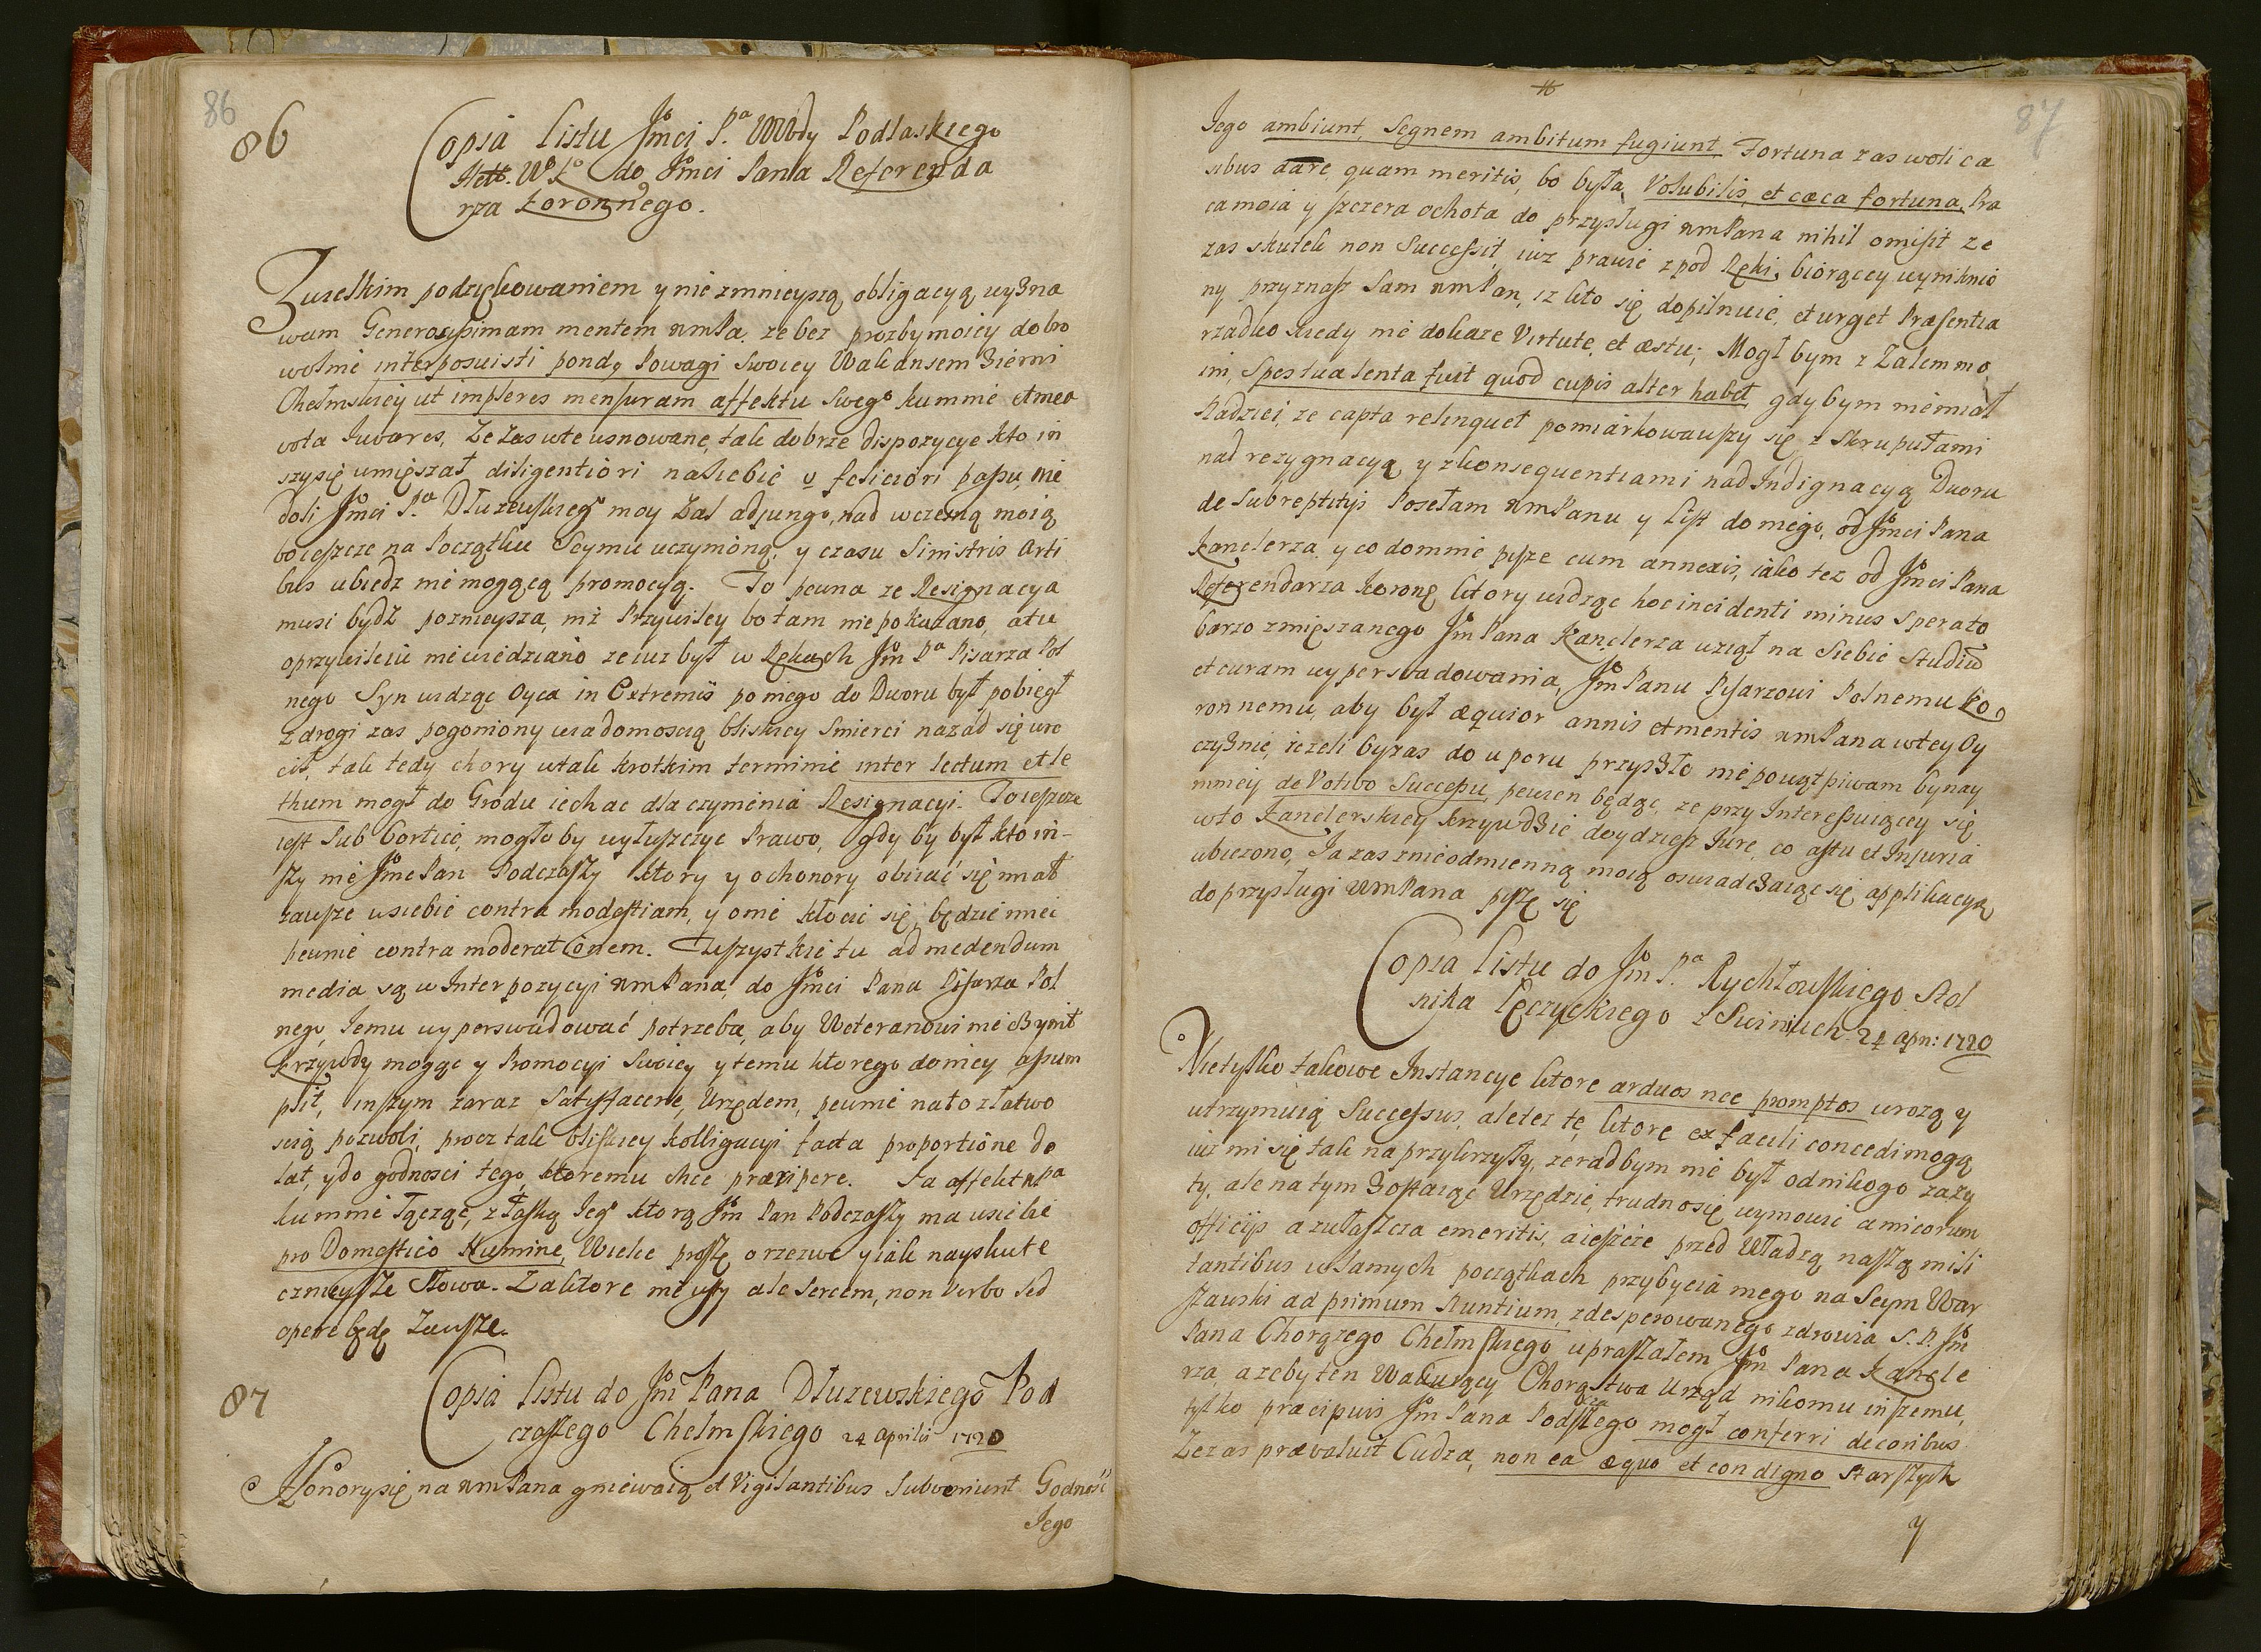 86
86
Copia listu Jmci P.ª WWdy Podlaskiego
Hett. W. K.º do Jmci Pana Referenda
rza Koronnego.
Zwielkim podziękowaniem y nie zmnieyszą obligacyą wyzna
wam Generosissimam mentem wmPa. ze bez prozby moiey dobro
wolnie interposuisti pondꝯ Powagi swoiey Wakansem Ziemi
Chełmskiey ut impleres mensuram affektu swego kumnie et mea
vota Iuvares, Ze zas wte usnowane, tak dobrze dispozycye kto in
szy się umięszał diligentiori nasiebie v feliciori passu, nie
doli Jmci P.ª Dłuzewskiegº moy Zal adjungo, nad wczesną moią
bo ieszcze na Początku Seymu uczynioną, y czasu Sinistris Arti
bus ubiedz nie mogącą promocyą. To pewna ze Resignacya
musi bydz poznieysza, niz Przywiley bo tam nie pokazano, a tu
oprzywileiu nie wiedziano ze iuz był w Rękach Jm Pª Pisarza Pol
nego Syn widząc Oyca in Extremis po niego do Dworu był pobiegł
z drogi zas pogoniony wiadomoscią bliskiey smierci nazad się wro
cił, tak tedy chory wtak krotkim terminie inter lectum et le
thum mogł do Grodu iechac dla czynienia Resignacyi. To ieszcze
iest sub Cortice, mogło by wyłuszczyc Prawo, Gdy by był kto in-
szy nie Jmc Pan Podczaszy ktory y ochonory obirać się miał
zawsze usiebie contra modestiam, y onie kłocic się, będzie miec
pewnie contra moderationem. Wszystkie tu ad medendum
media są w Interpozycyi wmPana, do Jmci Pana Pisarza Pol
nego, Jemu wyperswadować potrzeba, aby Weteranowi nie czynił
krzywdy mogąc y Promocyi Swoiey y temu ktorego do niey assum
psit, inszym zaraz Satysfacere, Urzędem, pewnie na to z łatwo
scią pozwoli, procz tak bliskiey kolligacyi facta proportione do
lat, y do godnosci tego, ktoremu chce præripere. Ja affekt wPª
kumnie łącząc, z łaską Jegº ktorą Jm Pan Podczaszy ma usiebie
pro Domestico Numine, Wielce proszę o rzezwe y iak nayskute
cznieysze słowa. Zaktore nie usty ale sercem, non verbo sed
opere będę Zawsze.
87
Copia listu do Jm Pana Dłuzewskiego Pod
czaszego Chełmskiego 24 Aprilis 1720
Honory się na wmPana gniewaią et Vigilantibus Subveniunt Godność
Jego
87
Jego ambiunt, segnem ambitum fugiunt Fortuna zas woli ca
sibus dare, quam meritis, bo była Volubilis, et cæca fortuna, Pra
ca moia y szczera ochota do przysługi wmPana nihil omisit ze
zas skutek non Successit, iuz prawie z pod Ręki biorącey wymknio
ny przyznasz Sam wmPan, iz kto się dopilnuie, et urget Præsentia
rzadko kiedy nie dokaze Virtute, et æstu; Mogł bym z Zalem mo
im, Spes tua lenta fuit quod cupis alter habet, gdybym nie miał
Nadziei, ze capta relinquet pomiarkowawszy się z skrupułami
nad rezygnacyą y z konsequentiami nad Indignacyą Dworu
de Subreptitijs Posełam wmPanu y list do niego, od Jmci Pana
Kanclerza y co domnie pisze cum annexis, iako tez od Jmci Pana
Referendarza Koronę ktory widząc hoc incidenti minus Sperato
barzo zmięszanego Jm Pana Kanclerza wziął na Siebie Studiũ
et curam wyperswadowania, Jm Panu Pisarzowi Polnemu Ko
ronnemu, aby był æquior annis et mentis wmPana wtey Oy
czyznie, iezeli by zas do uporu przyszło nie powątpiwam bynay
mniey de Votivo Successu, pewien będąc, ze przy Interessuiącey się
wto Kanclerskiey krzywdzie doydziesz Iure, co astu et Injuria
ubiezono, Ja zas z nieodmienną moią oswiadczaiąc się applikacyą
do przysługi wmPana piszę się
Copia listu do Jm P.ª Rychłowskiego Stol
nika Łęczyckiego z Swiniuch 24 apn: 1720
Nietylko takowe Instancye ktore arduos nec promptos wrozą y
utrzymuią Successus, ale tez te, ktore ex facili concedi mogą
iuz mi się tak naprzykrzyły, ze rad bym nie był od nikogo zazy
ty, ale na tym zostaiąc Urzędzie, trudno się wymowic amicorum
officijs a zwłaszcza emeritis, a ieszcze przed Władzą naszą mili
tantibus w samych początkach przybycia mego na Seym War
szawski ad primum Nuntium, zdesperowanego zdrowia S. P. Jm
Pana Chorązego Chełmskiego upraszałem Jm Pana Kancle
rza, azeby ten Wakuiący Chorąstwa Urząd nikomu inszemu,
tylko præcipuis Jm Pana Podczaszego mogł conferri decoribus
Zezas prævaluit Cudza, non ea æquo et condigno starszych
y